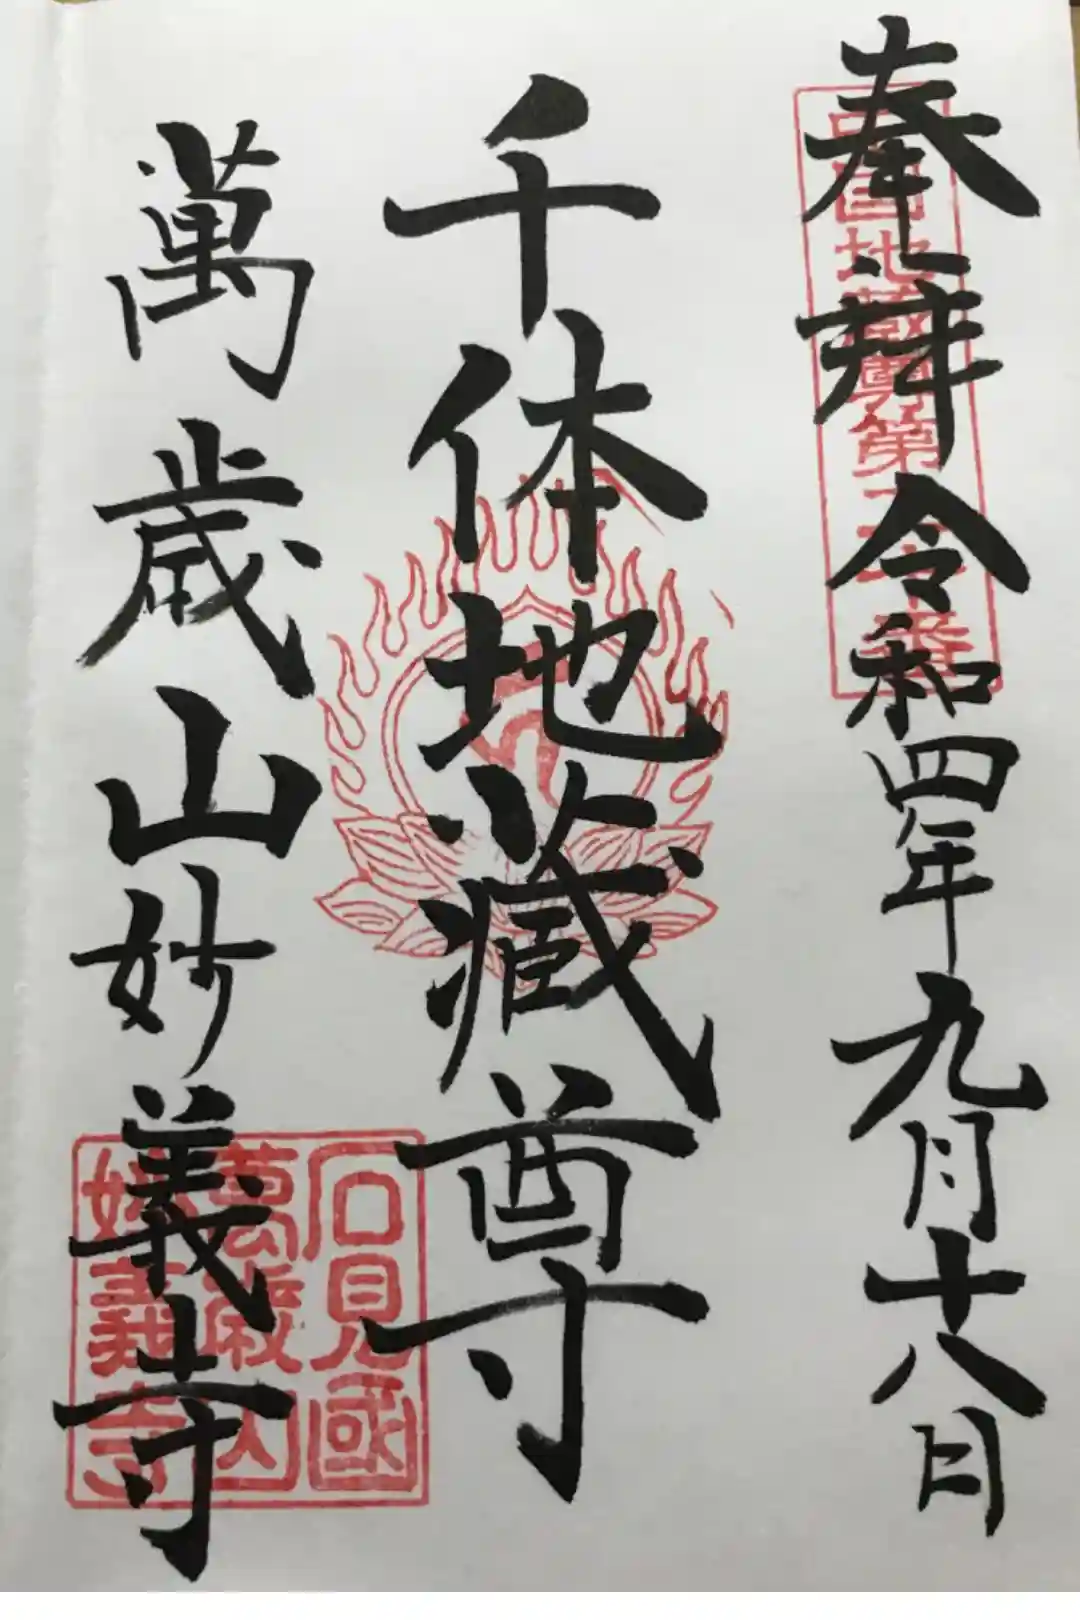 奉拝 令和四年九月十八日
千体地蔵尊
萬歳山妙義寺
石見國
萬歳山
妙義寺